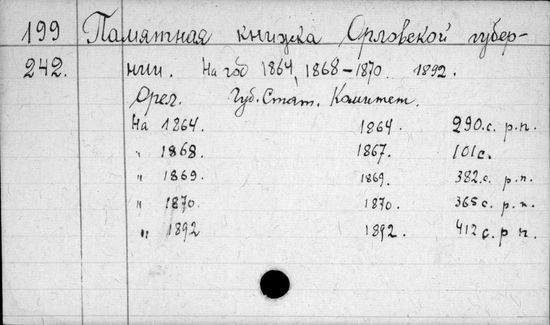 199 Памятная книжка Орловской губер-
242. нии. На год 1864, 1868-1870. 1892.
Орел. Губ. Стат. Комитет.
На 1864. 1864. 290 с. р.п.
" 1868. 1867. 101 с.
" 1869. 1869. 382 с. р.п.
" 1870. 1870. 365 с. р.п.
" 1892 1892. 412 с. р.п.